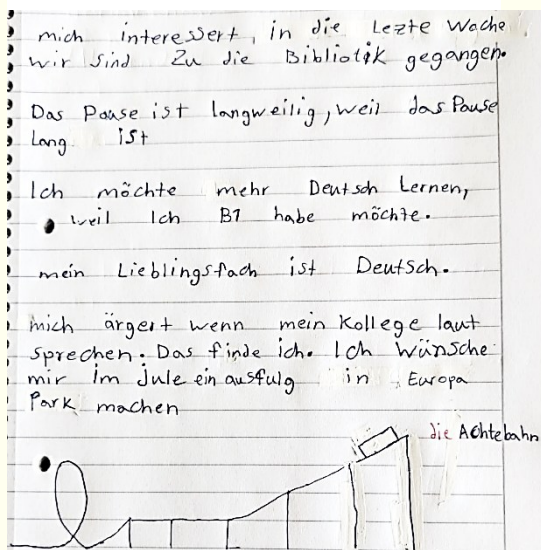 mich interessert, in die Lezte Wache
wir sind zu die Bibliotik gegangen.
Das Pause ist langweilig, weil das Pause
Lang ist
Ich möchte mehr Deutsch Lernen,
weil Ich B1 habe möchte.
mein Lieblingsfach ist Deutsch.
mich ärgert wenn mein Kollege laut
sprechen. Das finde ich. Ich wünsche
mir im jule ein ausfulg in Europa
Park machen
die Achtebahn